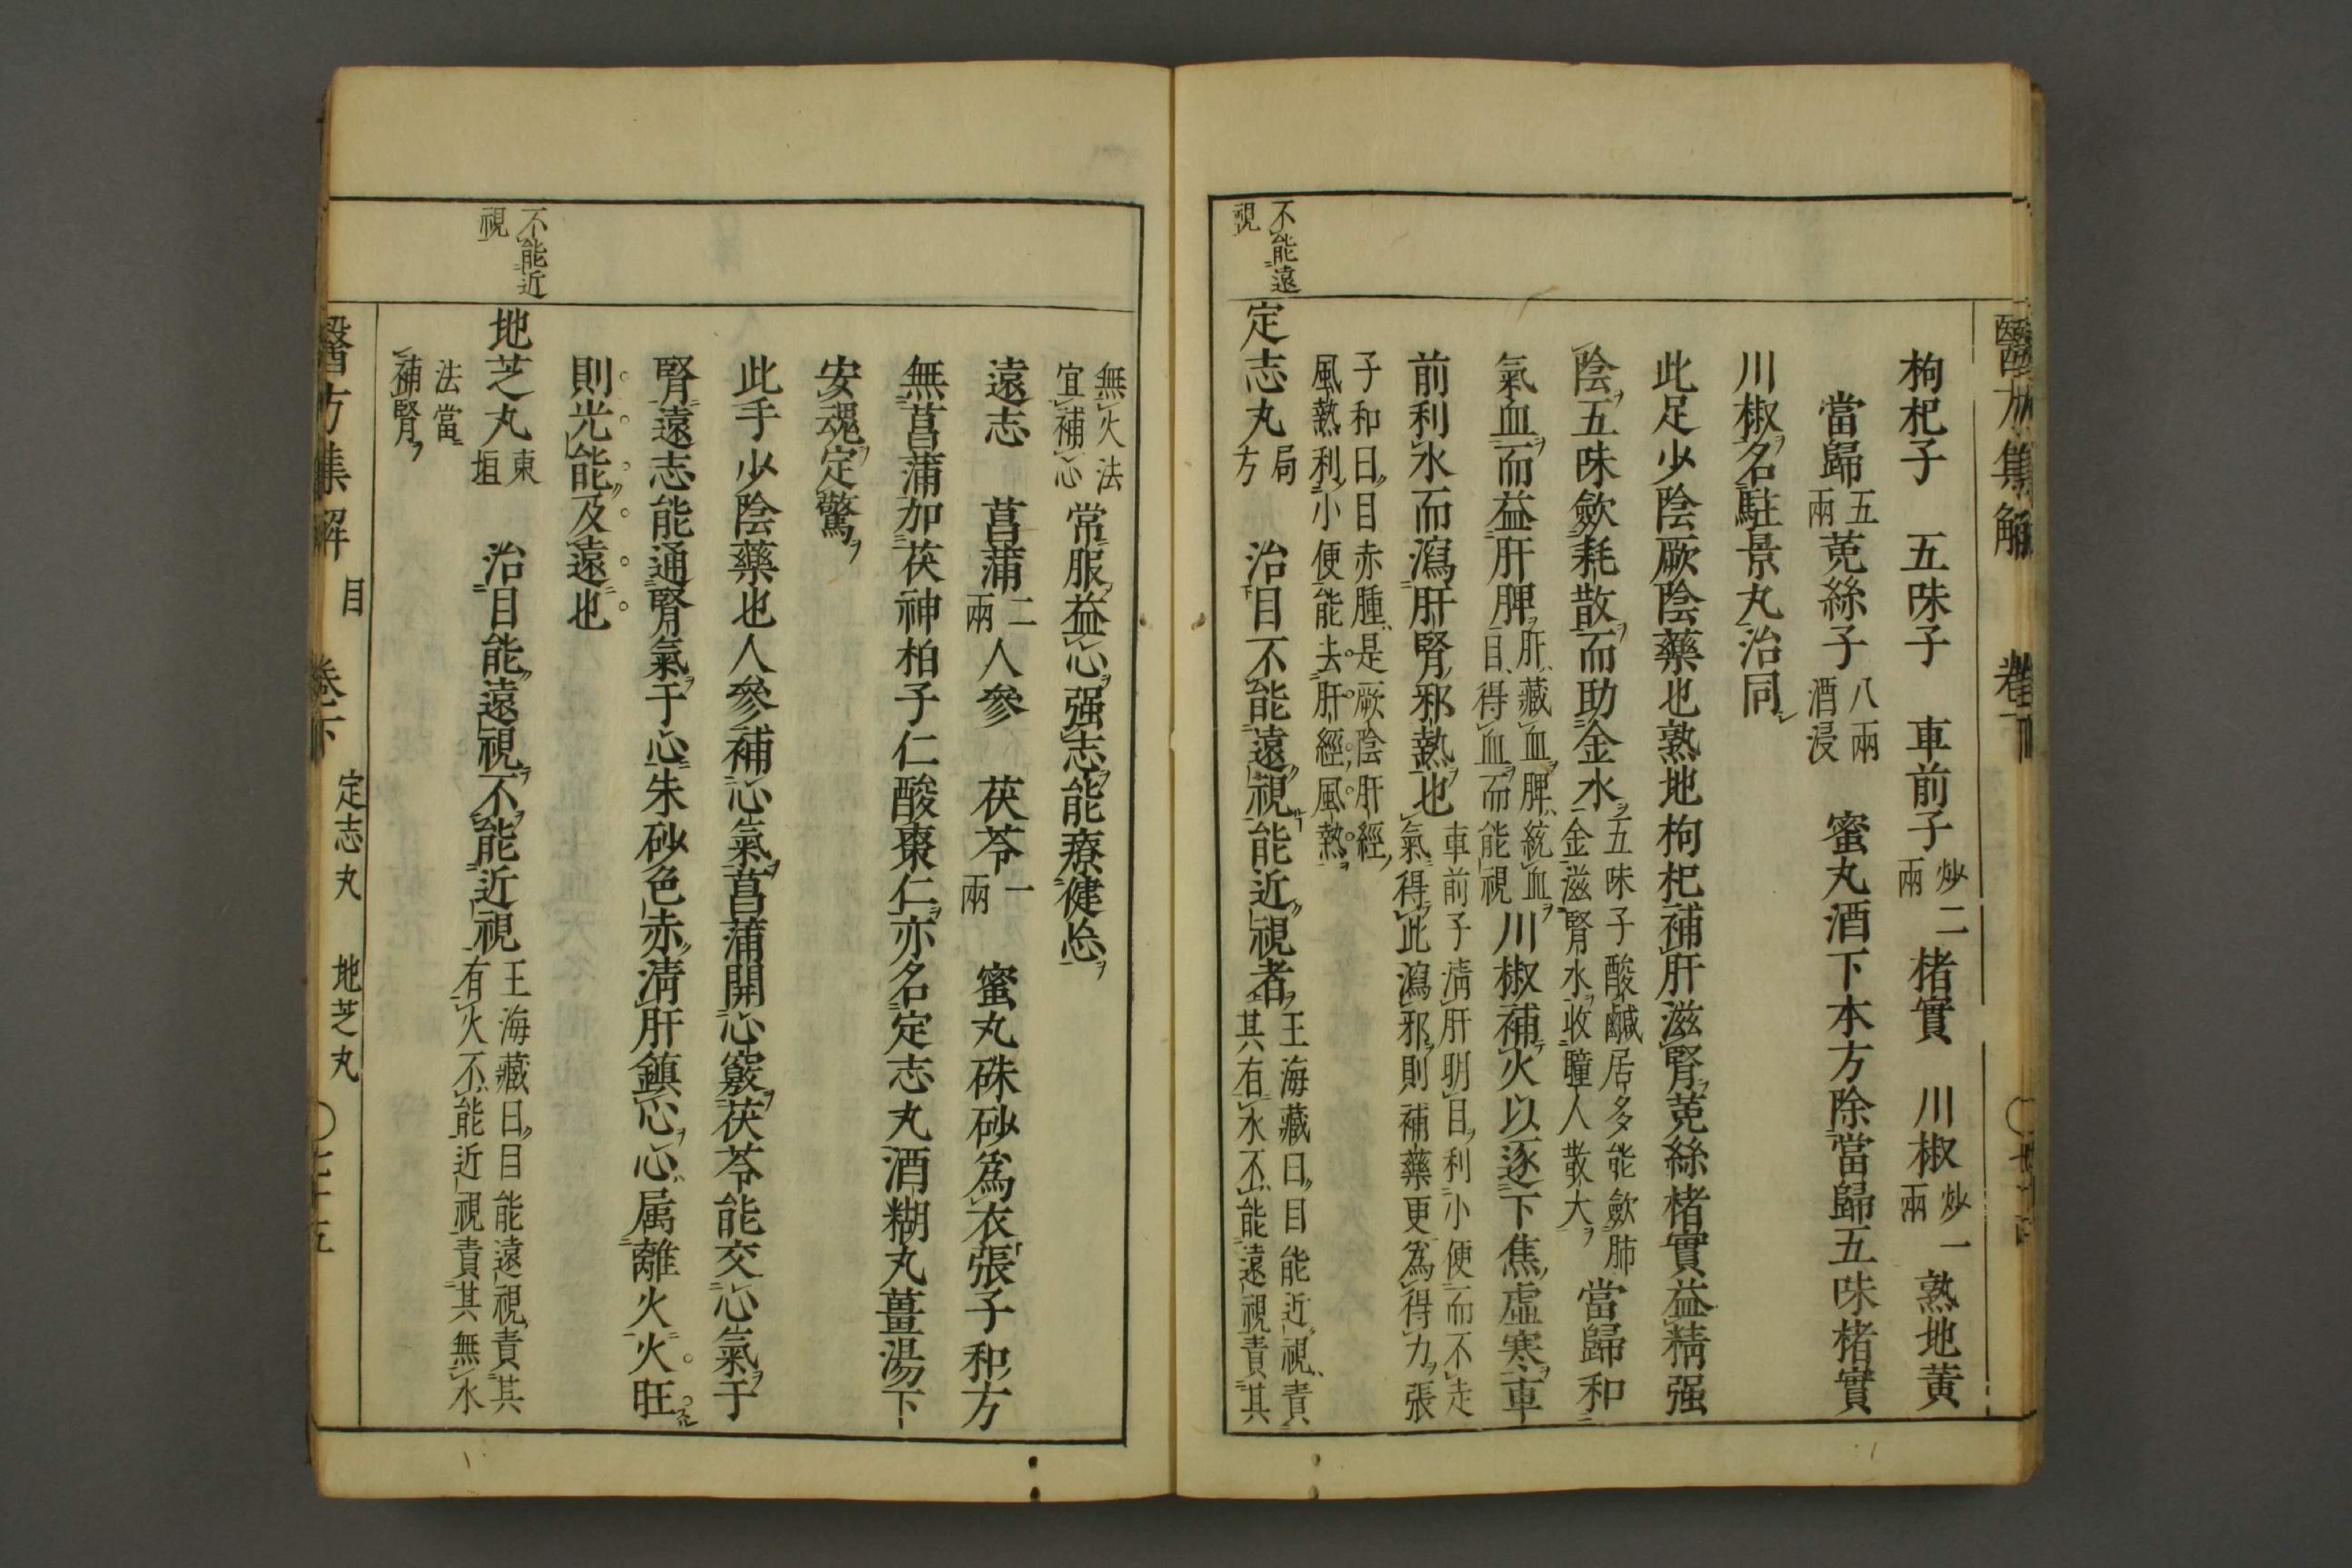 醫方集解
枸杞子　五味子　車前子炒二兩　楮實　川椒炒一兩　熟地黄
當歸五兩　菟絲子八兩酒浸　蜜丸酒下本方除當歸五味楮實
川椒名駐景丸治同
此足少陰厥陰藥也熟地枸杞補肝滋腎菟絲楮實益精强
陰五味歛耗散而助金水五味子酸鹹居多能歛肺金滋腎水收瞳人散大當歸和
氣血而益肝脾肝藏血脾統血目得血而能視川椒補火以逐下焦虛寒車
前利水而瀉肝腎邪熱也車前子淸肝明目利小便而不走氣得此瀉邪則補藥更爲得力張
子和曰目赤腫是厥陰肝經風熱利小便能去肝經風熱
不能遠視
定志丸局方　治目不能遠視能近視者王海藏曰目能近視責其有水不能遠視責其
無火法宜補心常服益心强志能療健忘
遠志　菖蒲二兩　人參　茯苓一兩　蜜丸硃砂爲衣張子和方
無菖蒲加茯神柏子仁酸棗仁亦名定志丸酒糊丸薑湯下
安魂定驚
此手少陰藥也人參補心氣菖蒲開心竅茯苓能交心氣于
腎遠志能通腎氣于心朱砂色赤淸肝鎮心心属離火火旺
則光能及遠也
不能近視
地芝丸東垣　治目能遠視不能近視王海藏曰目能遠視責其有火不能近視責其無水
法當補腎
醫方集解　目　卷下　定志丸　地芝丸